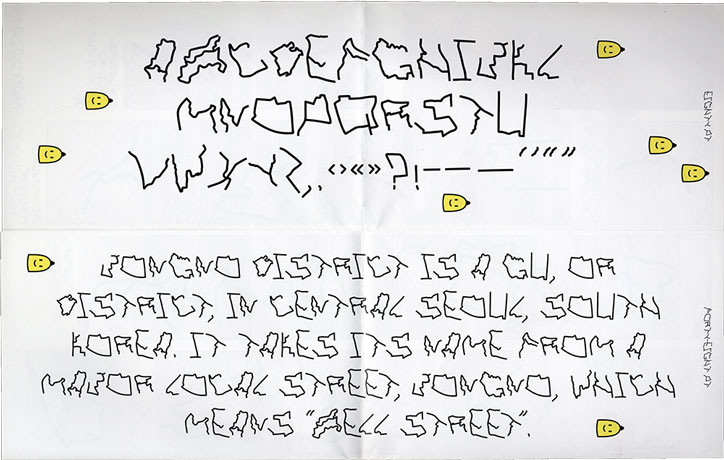 ABCDEFGHIJKL
MNOPQRSTU
VWXYZ,.‹›«»?!–——‘’“”
JONGNO DISTRICT IS A GU, OR
DISTRICT, IN CENTRAL SEOUL, SOUTH
KOREA. IT TAKES ITS NAME FROM A
MAJOR LOCAL STREET, JONGNO, WHICH
MEANS “BELL STREET”.